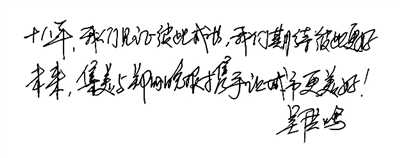 十八年，我们见证彼此成长，我们期待彼此更好
未来，集美与郑州晚报携手让城市更美好！